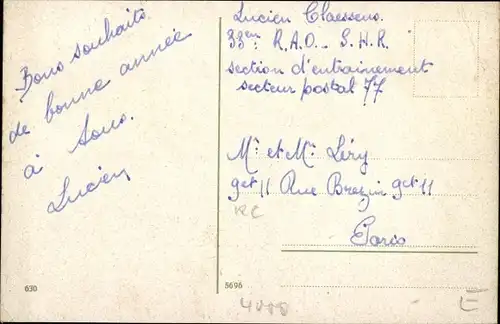 Bons souhaits
de bonne année
à tous.
Lucien
Lucien Claessens.
33em R.A.O. S.H.R.
section d'entrainement
secteur postal 77
Mr et Me Léry
11 Rue Brezin 11
Paris
630
5696